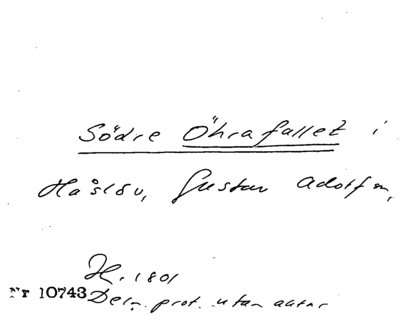 Södre Öhrafallet i
Håslöv, Gustav Adolf m,
H. 1801
Nr 10743 Dem. prot. utan autor